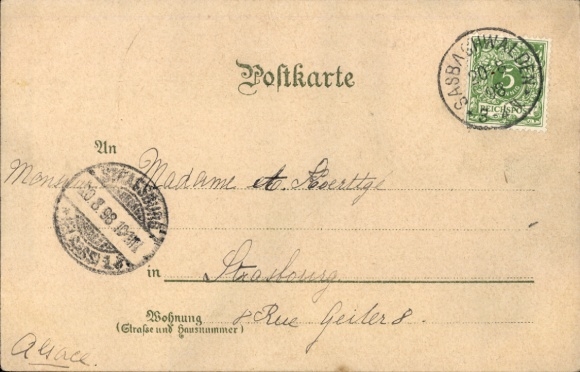 Postkarte
SASBACHWALDEN
5
REICHSPOST
An
Monsieur Madame A.
STRASSBURG
20 8 98
(ELSASS) 1
in Strasbourg.
Wohnung
(Straße und Hausnummer)
8 Rue Geiler 8.
Alsace.